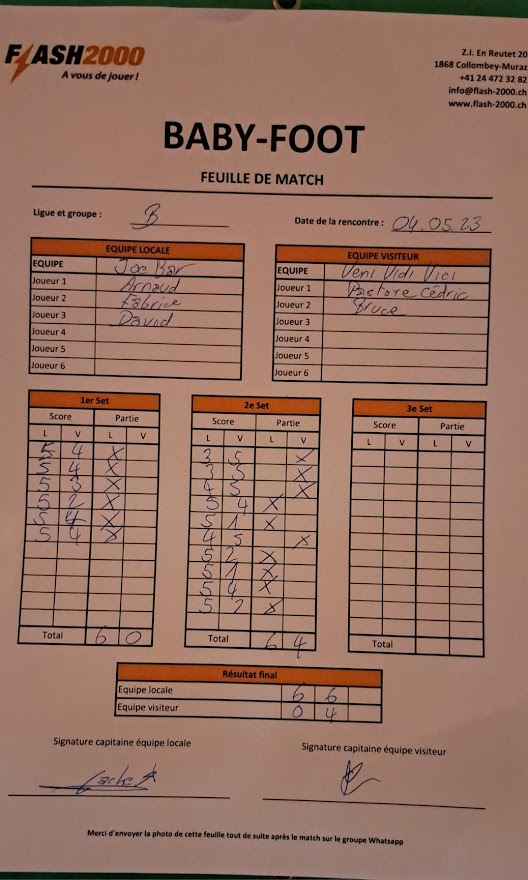 FLASH2000
A vous de jouer !
Z.I. En Reutet 20
1868 Collombey-Muraz
+41 24 472 32 82
info@flash-2000.ch
www.flash-2000.ch
BABY-FOOT
FEUILLE DE MATCH
Ligue et groupe : B
Date de la rencontre : 04.05.23
EQUIPE LOCALE
EQUIPE Joe Bar
Joueur 1 Arnaud
Joueur 2 Fabrice
Joueur 3 David
Joueur 4
Joueur 5
Joueur 6
EQUIPE VISITEUR
EQUIPE Veni Vidi Vici
Joueur 1 Cédric
Joueur 2 Bruce
Joueur 3
Joueur 4
Joueur 5
Joueur 6
1er Set
Score Partie
L V L V
5 4 X
5 4 X
5 3 X
5 2 X
5 4 X
5 4 X
Total 6 0
2e Set
Score Partie
L V L V
3 5 X
3 5 X
4 5 X
5 4 X
5 1 X
4 5 X
5 2 X
5 1 X
5 4 X
5 2 X
Total 6 4
3e Set
Score Partie
L V L V
Total
Résultat final
Equipe locale 6 6
Equipe visiteur 0 4
Signature capitaine équipe locale
Signature capitaine équipe visiteur
Merci d'envoyer la photo de cette feuille tout de suite après le match sur le groupe Whatsapp